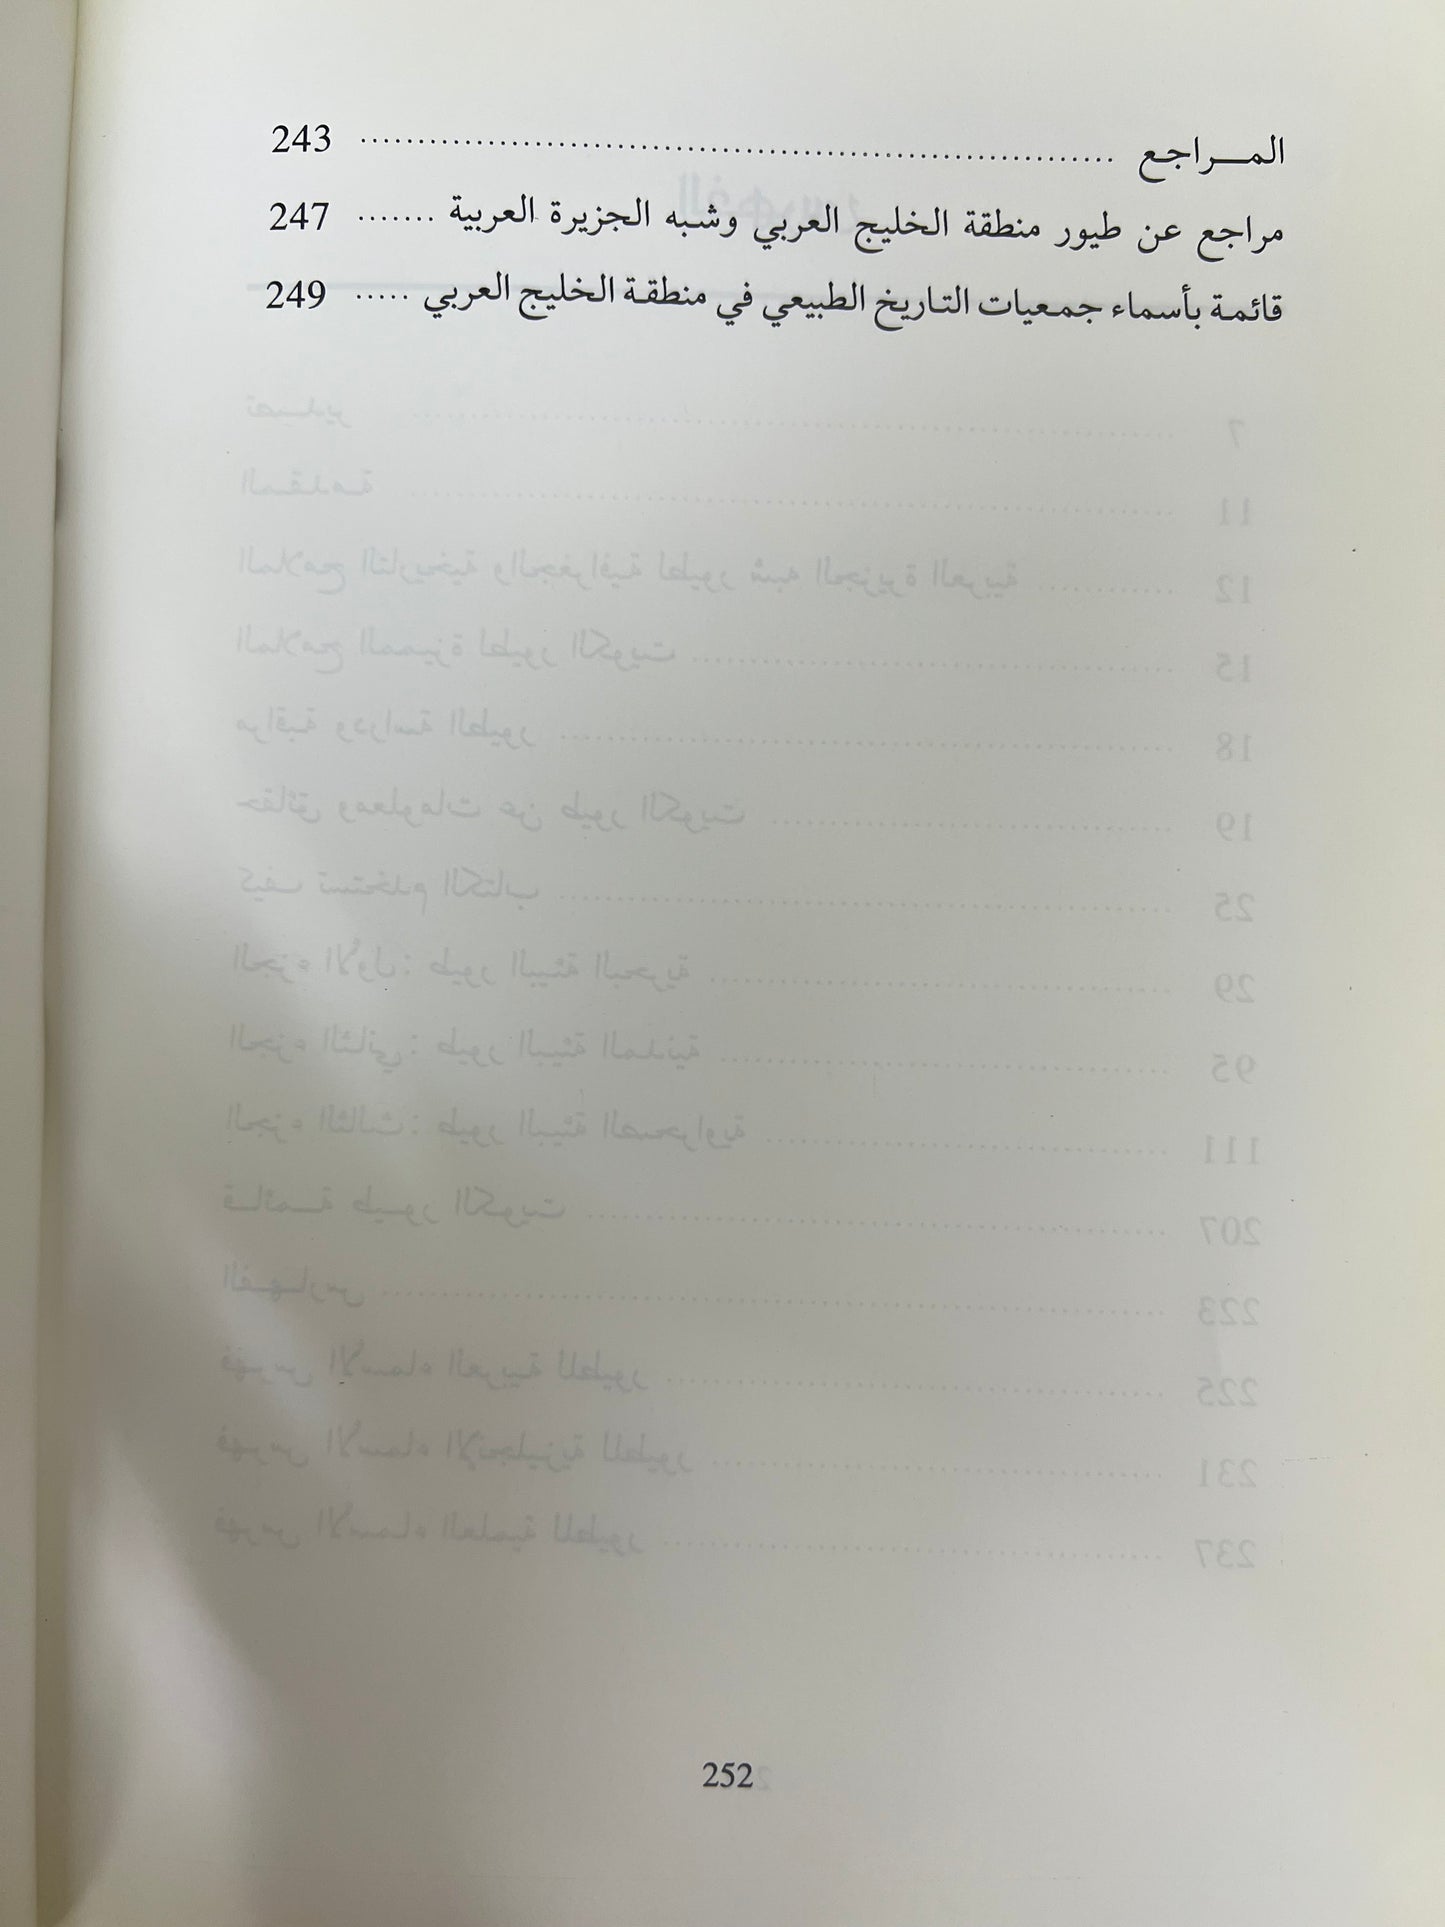 المـــراجع ................................................................ 243
مراجع عن طيور منطقة الخليج العربي وشبه الجزيرة العربية ....... 247
قائمة بأسماء جمعيات التاريخ الطبيعي في منطقة الخليج العربي ..... 249
252